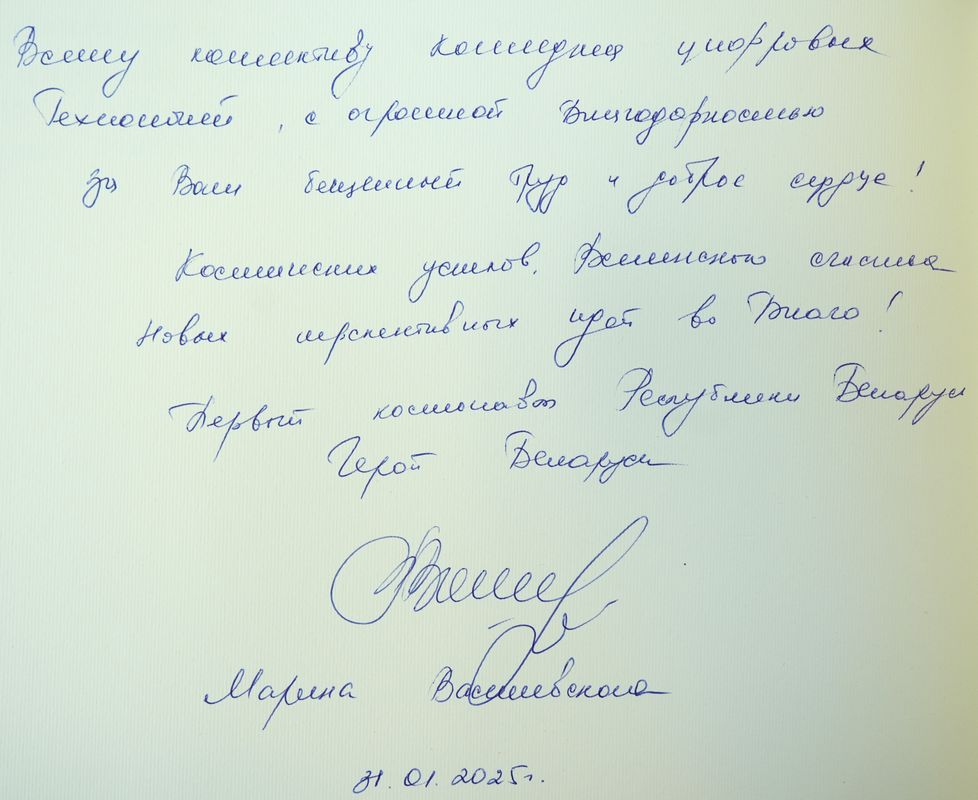 Всему коллективу колледжа цифровых
Технологий, с огромной Благодарностью
за Ваш бесценный Труд и доброе сердце!
Космических успехов, Вселенского счастья
Новых перспективных идей во Благо!
Первый космонавт Республики Беларусь
Герой Беларуси
Марина Василевская
31.01.2025г.